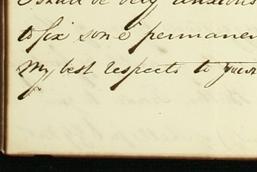 I shall be very anxious
to fix some permanen
My best respects to your